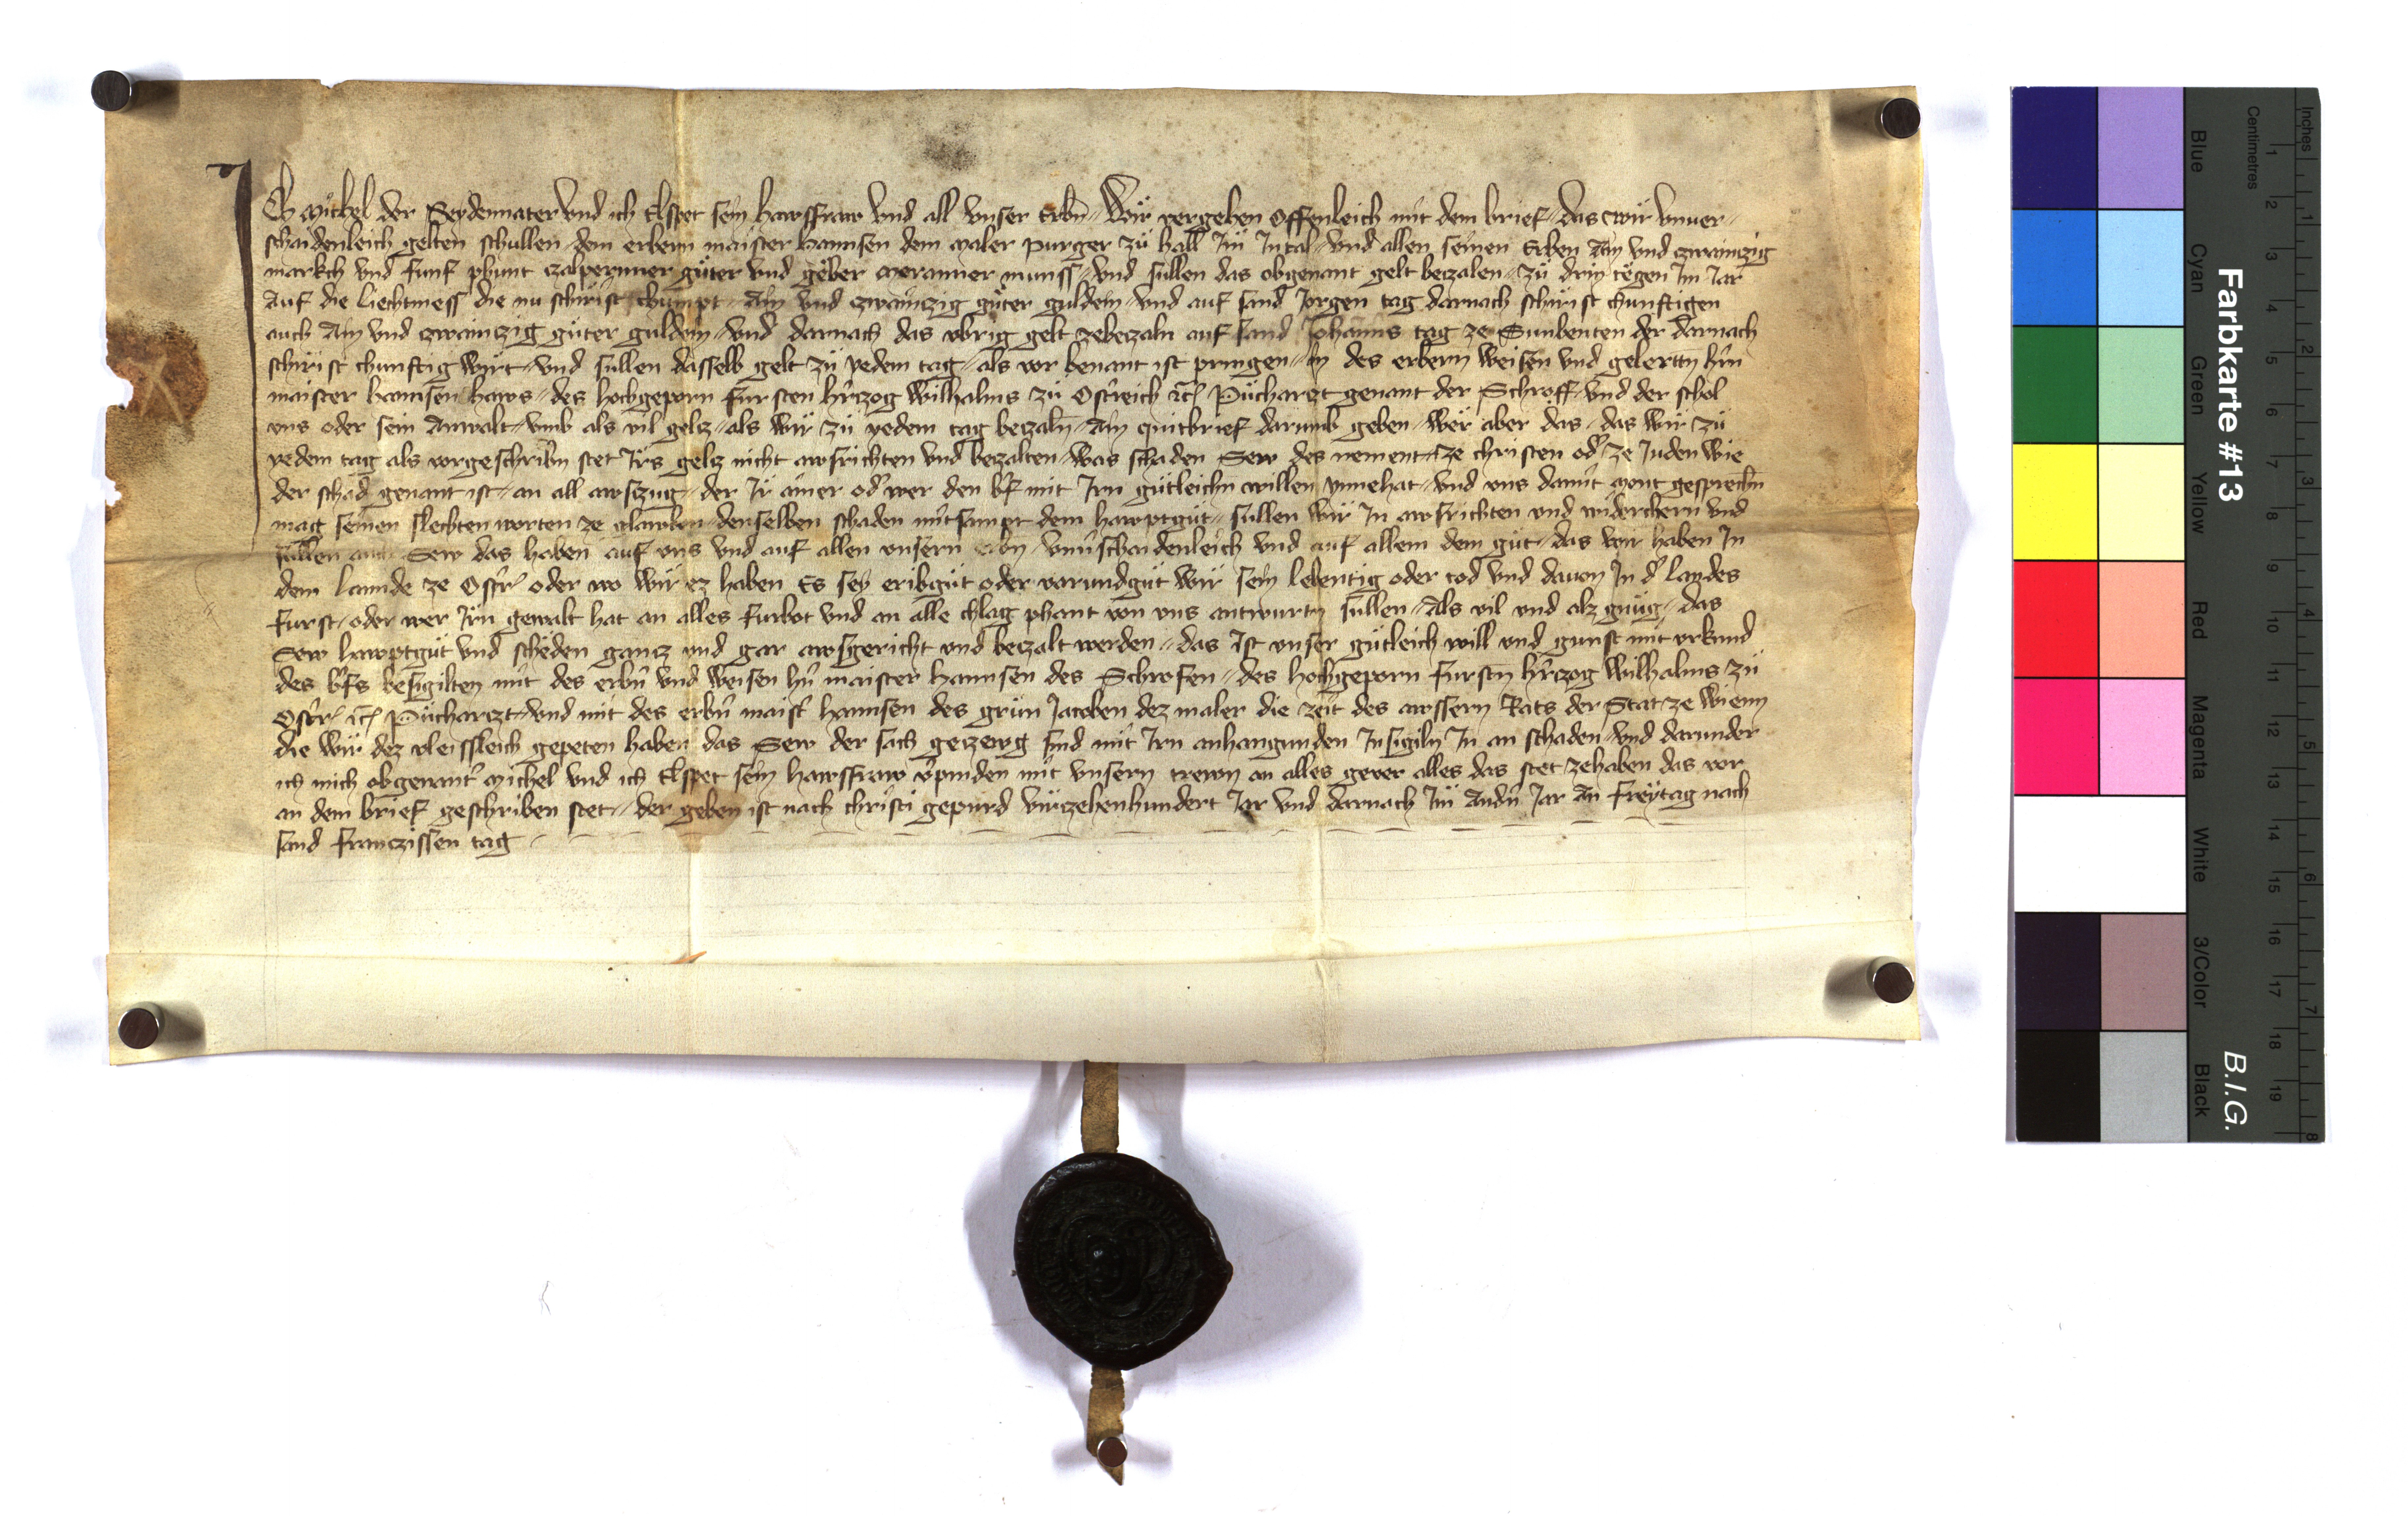 Ich Michel der Seydennater vnd ich Elspet sein hawsfraw vnd all vnser Erbn̄ Wir vergehen Offenleich mit dem brief das wir vnuer
schaidenleich gelten schullen dem erbern maister hannsen dem maler purger zü hall Im Intal vnd allen seinen Erben Ain vnd zwainczig
markch vnd funf phunt czalperinner güter vnd geber meranner muness vnd sullen das obgenant gelt beczalen zü drin tegen Im Iar
Auf die liechtmess die nu schirist chumpt Ain vnd zwainczig güter guldein vnd auf sand Jorgen tag darnach schirist chunftigen
auch Ain vnd zwainczig güter guldein vnd darnach das vbrig gelt zebeczaln auf sand Johanns tag ze Sunbenten der darnach
schirist chunftig wirt vnd sullen dasselb gelt zü yedem tag als vor benant ist pringen in des erbern weisen vnd gelertn̄ hrn
maister hannsen haws des hochgeporn fursten hrczog Wilhalms zü Ostreich etc Pücharczt genant der Schroff vnd der schol
vns oder sein Anwalt vmb als vil gelcz als wir zü yedem tag beczaln̄ Ain quitbrief darumb geben wer aber das das wir zü
yedem tag als vorgeschribn stet Irs gelcz nicht awsrichten vnd beczalten was schaden Sew des nement ze christen od' ze Juden wie
der schad genant ist an all awsczug der Ir ainer od' wer den br̄f mit Irn gütleichn willen ynnehat vnd vns damit mont gesprechn̄
mag seinen slechten worten ze glawben denselben schaden mitsampt dem hawptgüt sullen wir In awsrichten vnd widerchern vnd
sullen auch Sew das haben auf vns vnd auf allen vnsern erbn vnuerschaidenleich vnd auf allem dem güt das wir haben In
dem lannde ze Ostr' oder wo wir ez haben Es sey eribgüt oder varundgüt wir sein lebentig oder tod vnd dauon In d' landes
furst oder wer Irn gewalt hat an alles furbot vnd an alle chlag phant von vns antwurtn̄ sullen Als vil vnd alz gnüg das
Sew hawptgüt vnd scheden gancz vnd gar awsgericht vnd beczalt werden das Ist vnser gütleich will vnd gunst mit vrkund
des br̄fs besigilten mit des erbn̄ vnd weisen hn̄ maister hannsen des Schrofen des hochgeporn furstn̄ hrczog Wilhalms zü
Ostr' etc Pücharczt vnd mit des erbn̄ maist' hannsen des grün Jacoben dez maler die zeit des awssern Rats der Stat ze wienn
die wir dez vleissleich gepeten haben das Sew der sach geczewg sind mit Irn anhangunden Insigiln In an schaden vnd darunder
ich mich obgenant' Michel vnd ich Elspet sein hawsfraw v'pinden mit vnsern trewn an alles gever alles das stet zehaben das vor
an dem brief geschriben stet der geben ist nach christi gepurd virczehenhundert Iar vnd darnach Im Andn̄ Iar An freytag nach
sand franczissen tag
Farbkarte #13
B.I.G.
Blue Cyan Green Yellow Red Magenta White 3/Color Black
Centimetres 1 2 3 4 5 6 7 8 9 10 11 12 13 14 15 16 17 18 19
Inches 1 2 3 4 5 6 7 8